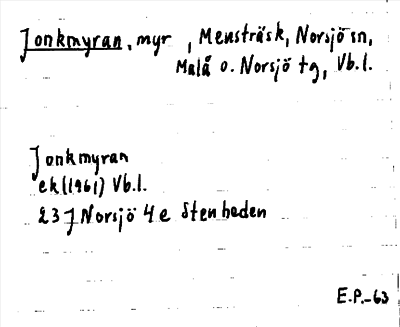 Jonkmyran, myr , Mensträsk, Norsjö sn,
Malå o. Norsjö tg, Vb.l.
Jonkmyran
ek(1961) Vb.l.
23J Norsjö 4e Stenheden
E.P.-63